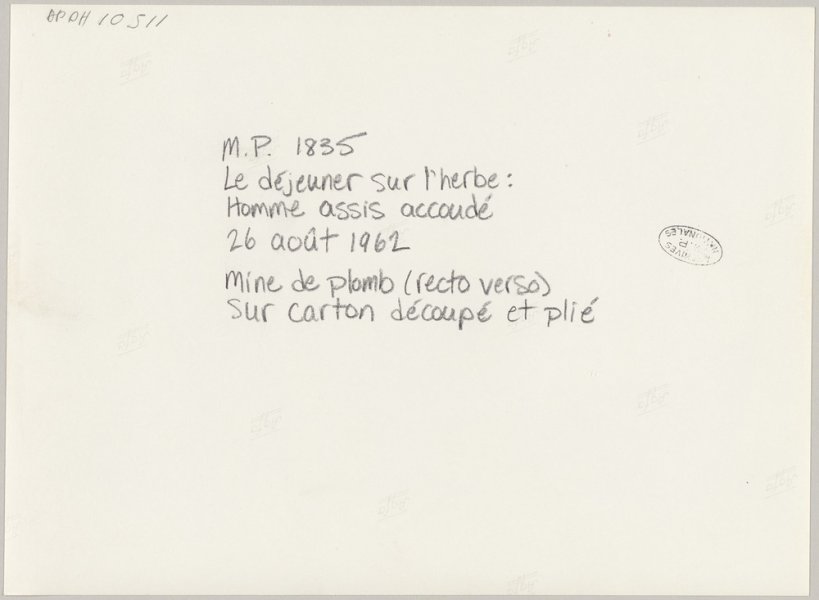 APPH 10511
M.P. 1835
Le déjeuner sur l'herbe :
Homme assis accoudé
26 août 1962
Mine de plomb (recto verso)
Sur carton découpé et plié
ARCHIVES
NATIONALES